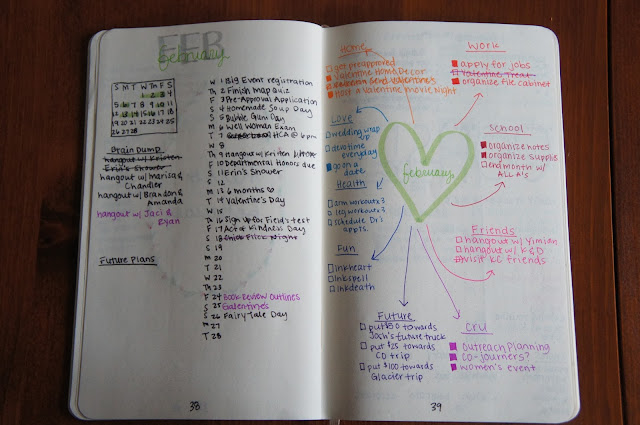 FEB
february
S M T W Th F S
1 2 3 4
5 6 7 8 9 10 11
12 13 14 15 16 17 18
19 20 21 22 23 24 25
26 27 28
Brain Dump
hangout w/ Kristen
Erin's Shower
hangout w/ Marisa &
Chandler
hangout w/ Brandon &
Amanda
hangout w/ Jaci &
Ryan
Future Plans
W 1 Big Event registration
Th 2 Finish Map Quiz
F 3 Pre-Approval Application
S 4 Homemade Soup Day
S 5 Bubble Gum Day
M 6 Well Woman Exam
T 7 HCA @ 6pm
W 8
Th 9 hangout w/ Kristen
F 10 Departmental Honors due
S 11 Erin's Shower
S 12
M 13 6 months ♡
T 14 Valentine's Day
W 15
Th 16 Sign up for Field's test
F 17 Act of Kindness Day
S 18 Chick Flick Night
S 19
M 20
T 21
W 22
Th 23
F 24 Book Review Outlines
S 25 Galentines
S 26 Fairy Tale Day
M 27
T 28
38
Home
got preapproved
Valentine Home Decor
Valentines
Host a Valentine movie Night
Love
wedding wrap
up
devo time
everyday
go on a
date
Health
arm workout x3
leg workout x3
schedule Dr.
appts.
Fun
inkheart
inkspell
inkdeath
Future
put $50 towards
Josh's future truck
put $25 towards
CO trip
put $100 towards
Glacier trip
february
Work
apply for jobs
Valentine Treat
organize file cabinet
School
organize notes
organize supplies
end month w/
ALL A's
Friends
hangout w/ Yimian
hangout w/ K & D
visit KC friends
Cru
Outreach Planning
Co-journers?
women's event
39